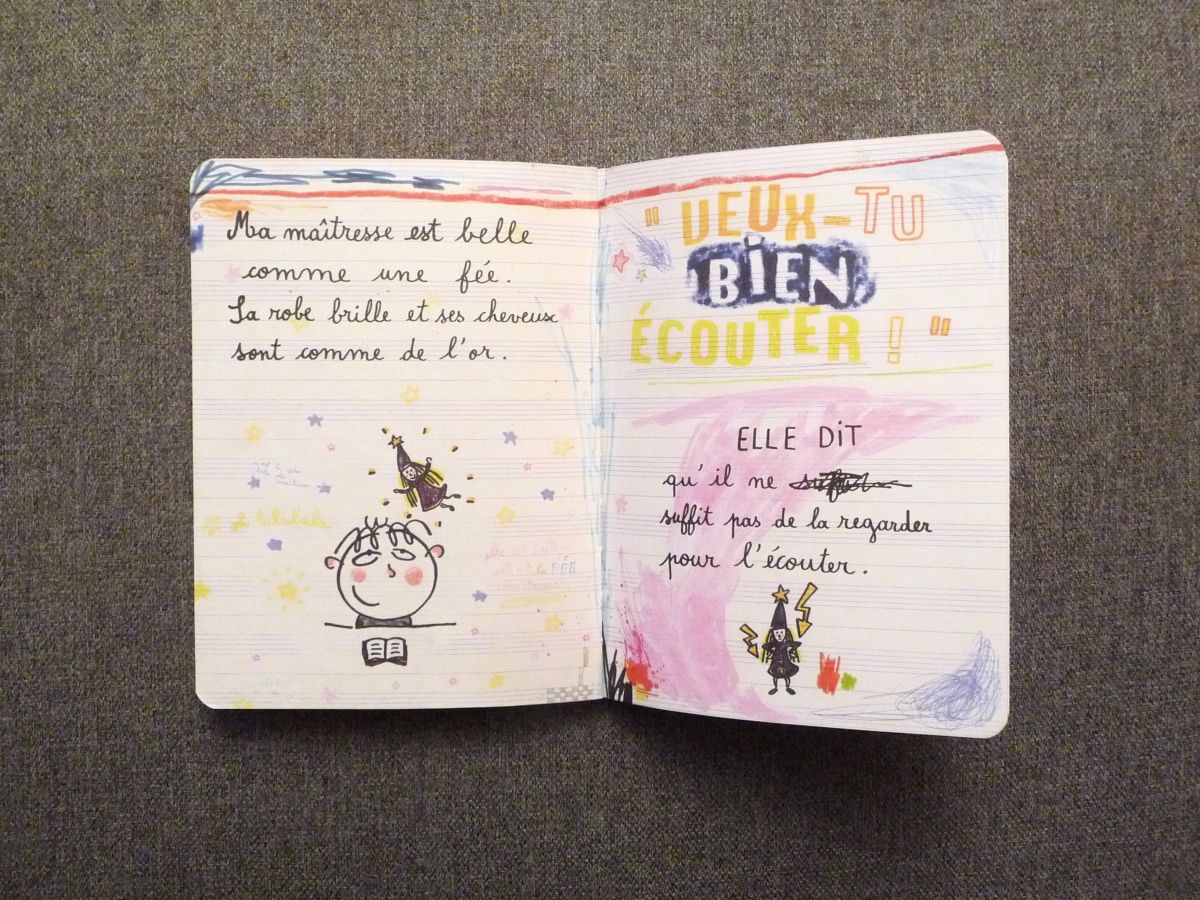 Ma maîtresse est belle
comme une fée.
Sa robe brille et ses cheveux
sont comme de l'or.
lalalala
" VEUX-TU
BiEN
ÉCOUTER ! "
ELLE DiT
qu'il ne
suffit pas de la regarder
pour l'écouter.